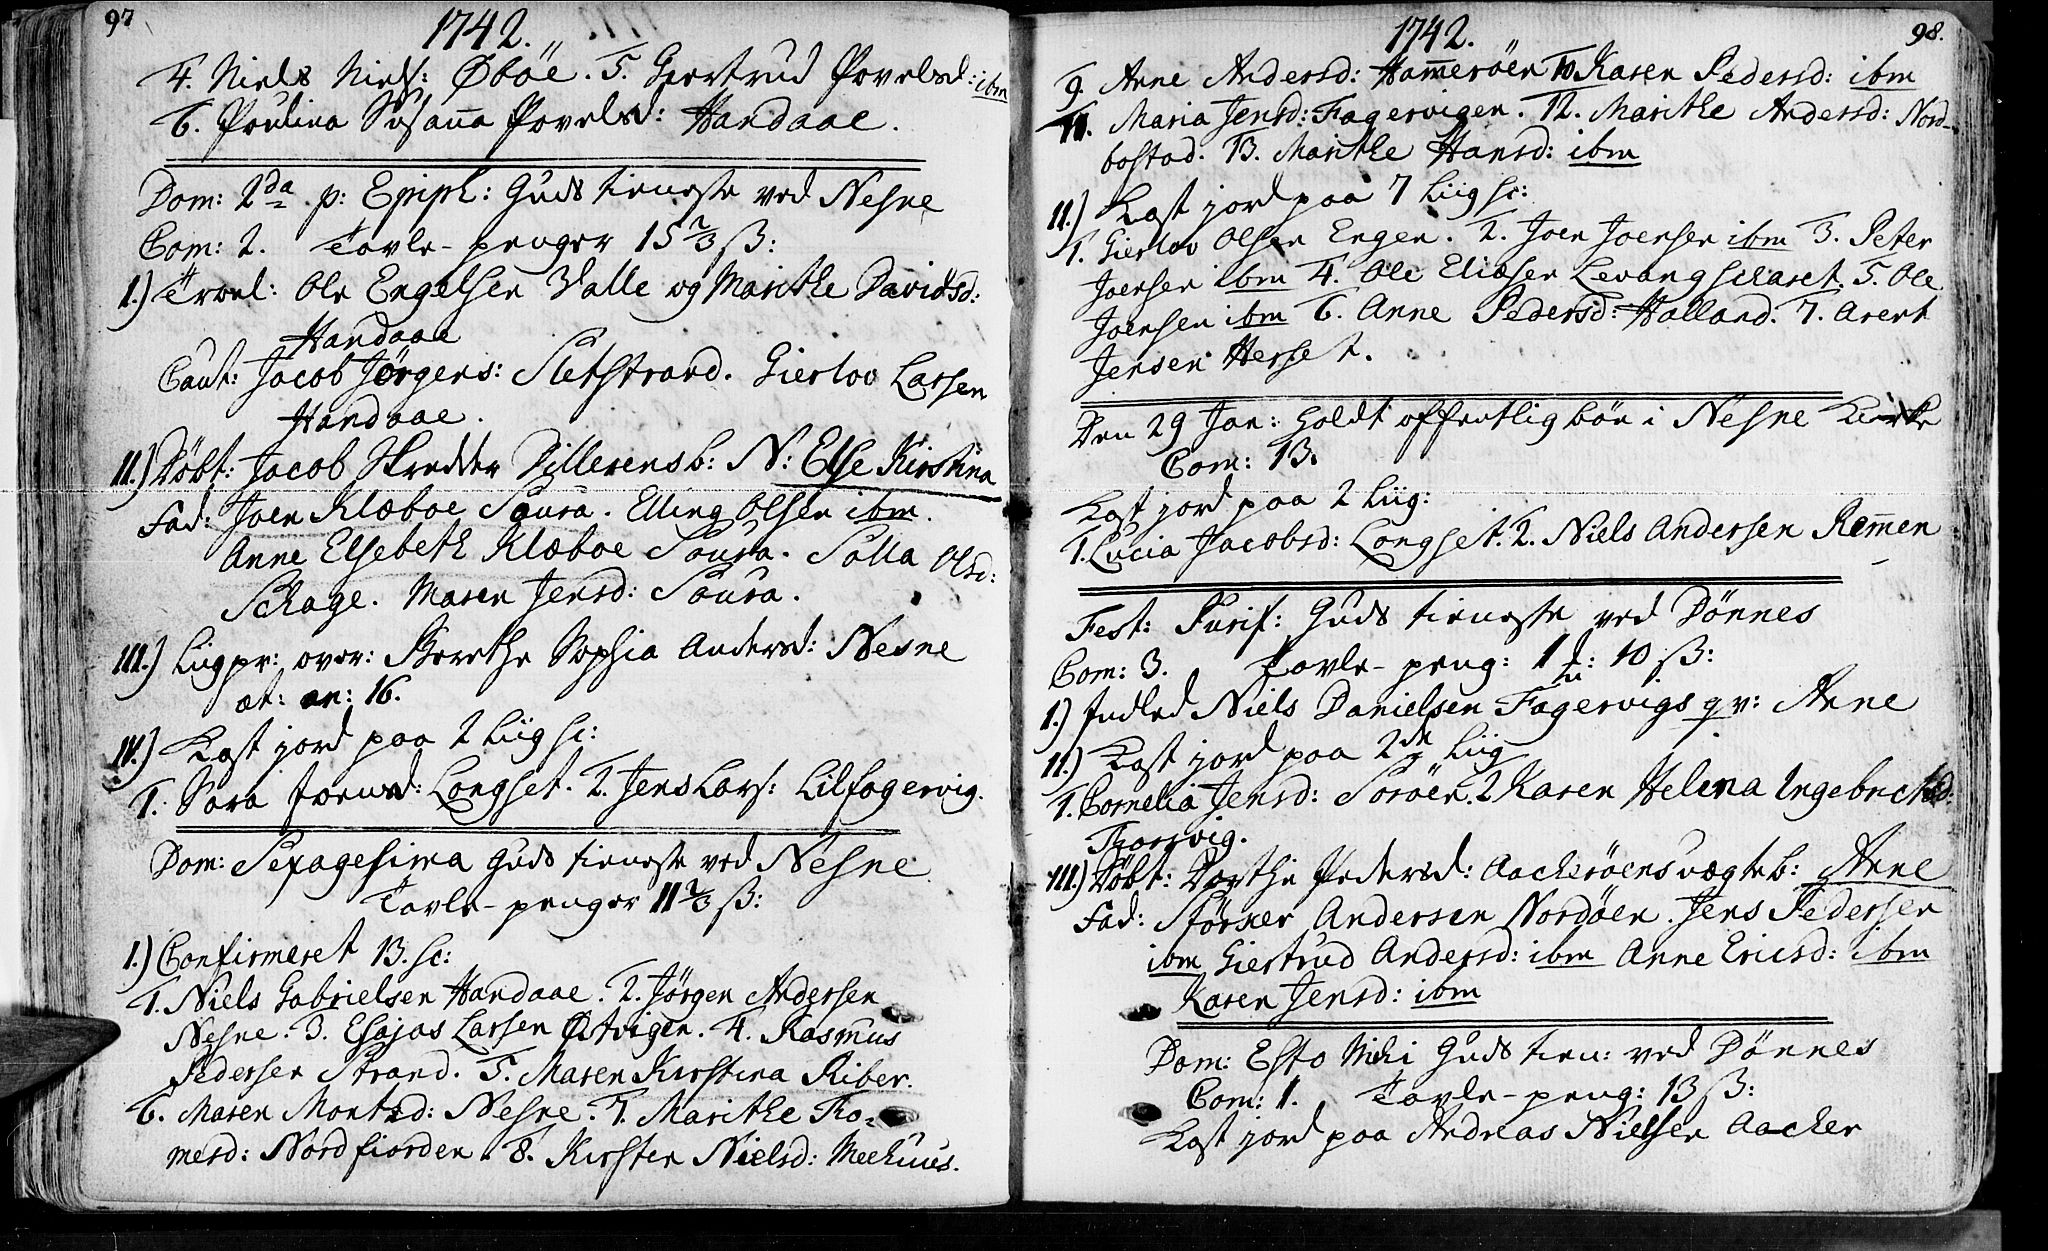 97
1742.
4. Niels Niels: Øböe. 5. Giertrud Povelsd: ibm
6. Paulina Susanna Povelsd: Handaae.
Dom: 2da p: Epiph: Guds tieneste ved Nesne
Com: 2. Tavle-penger 15 2/3 ß:
1.) Trol: Ole Engelsen Valle og Marithe Davidsd:
Handaae
Caut: Jacob Jörgens: Sletstrand. Gierlov Larsen
Handaae.
11.) Döbt: Jacob Skredder Dillerens b: N: Else Kirstina
Fad: Joen Klæboe Soura. Elling Olsen ibm.
Anne Elsebeth Klæboe Soura. Salla Olsd:
Schage. Maren Jensd: Soura.
111.) Liigpr: over: Dorethe Sophia Andersd: Nesne
æt: an: 16.
1V.) Kast jord paa 2 Liig sc:
1. Sara Joensd: Longset. 2. Jens Lars: Lilfagervig.
Dom: Sexagesima Guds tieneste ved Nesne.
Tavle-penger 11 2/3 ß:
1.) Confirmeret 13. sc:
1. Niels Gabrielsen Handaae. 2. Jörgen Andersen
Nesne. 3. Esajas Larsen Østvigen. 4. Rasmus
Pedersen Strand. 5. Maren Kirstina Riber.
6. Maren Montsd: Nesne. 7. Marithe To-
mesd: Nordfiorden. 8. Kirsten Nielsd: Meehuus.
98.
1742.
9. Anne Andersd: Hammeröen 10 Karen Pedersd: ibm
11. Maria Jensd: Fagervigen. 12. Marithe Andersd: Nord-
bostad. 13. Marithe Hansd: ibm
11.) Kast jord paa 7 Liig sc:
1. Gierlov Olsen Engen. 2. Joen Joensen ibm 3. Peter
Joensen ibm 4. Ole Eliasen Levangscharet. 5. Ole
Joensen ibm 6. Anne Pedersd: Halland. 7. Arent
Jensen Herset.
Den 29 Jan: holdt offentlig bön i Nesne Kirke
Com: 13.
Kast jord paa 2 Liig:
1. Lucia Jacobsd: Longset. 2. Niels Andersen Remmen
Fest: Purif: Guds tieneste ved Dönnes
Com: 3. Tavle-peng: 1 10 ß:
1.) Indled Niels Danielsen Fagervigs qv: Anne
11.) Kast jord paa 2de Liig
1. Cornelia Jensd: Soröen. 2 Karen Helena Ingebrictsd:
Thorsvig.
111.) Döbt: Dorthe Pedersd: Aacheröens uægte b: Anne
Fad: Störker Andersen Nordöen. Jens Pedersen
ibm Giertrud Andersd: ibm Anne Ericsd: ibm
Karen Jensd: ibm
Dom: Esto Mihi Guds tien: ved Dönnes
Com: 1. Tavle-peng: 13 ß:
Kast jord paa Andreas Nielsen Aacker